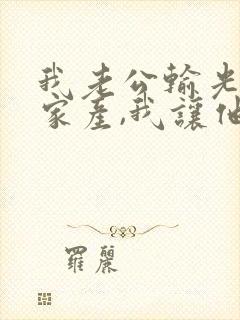 我老公輸光
家產,我讓他
羅麗